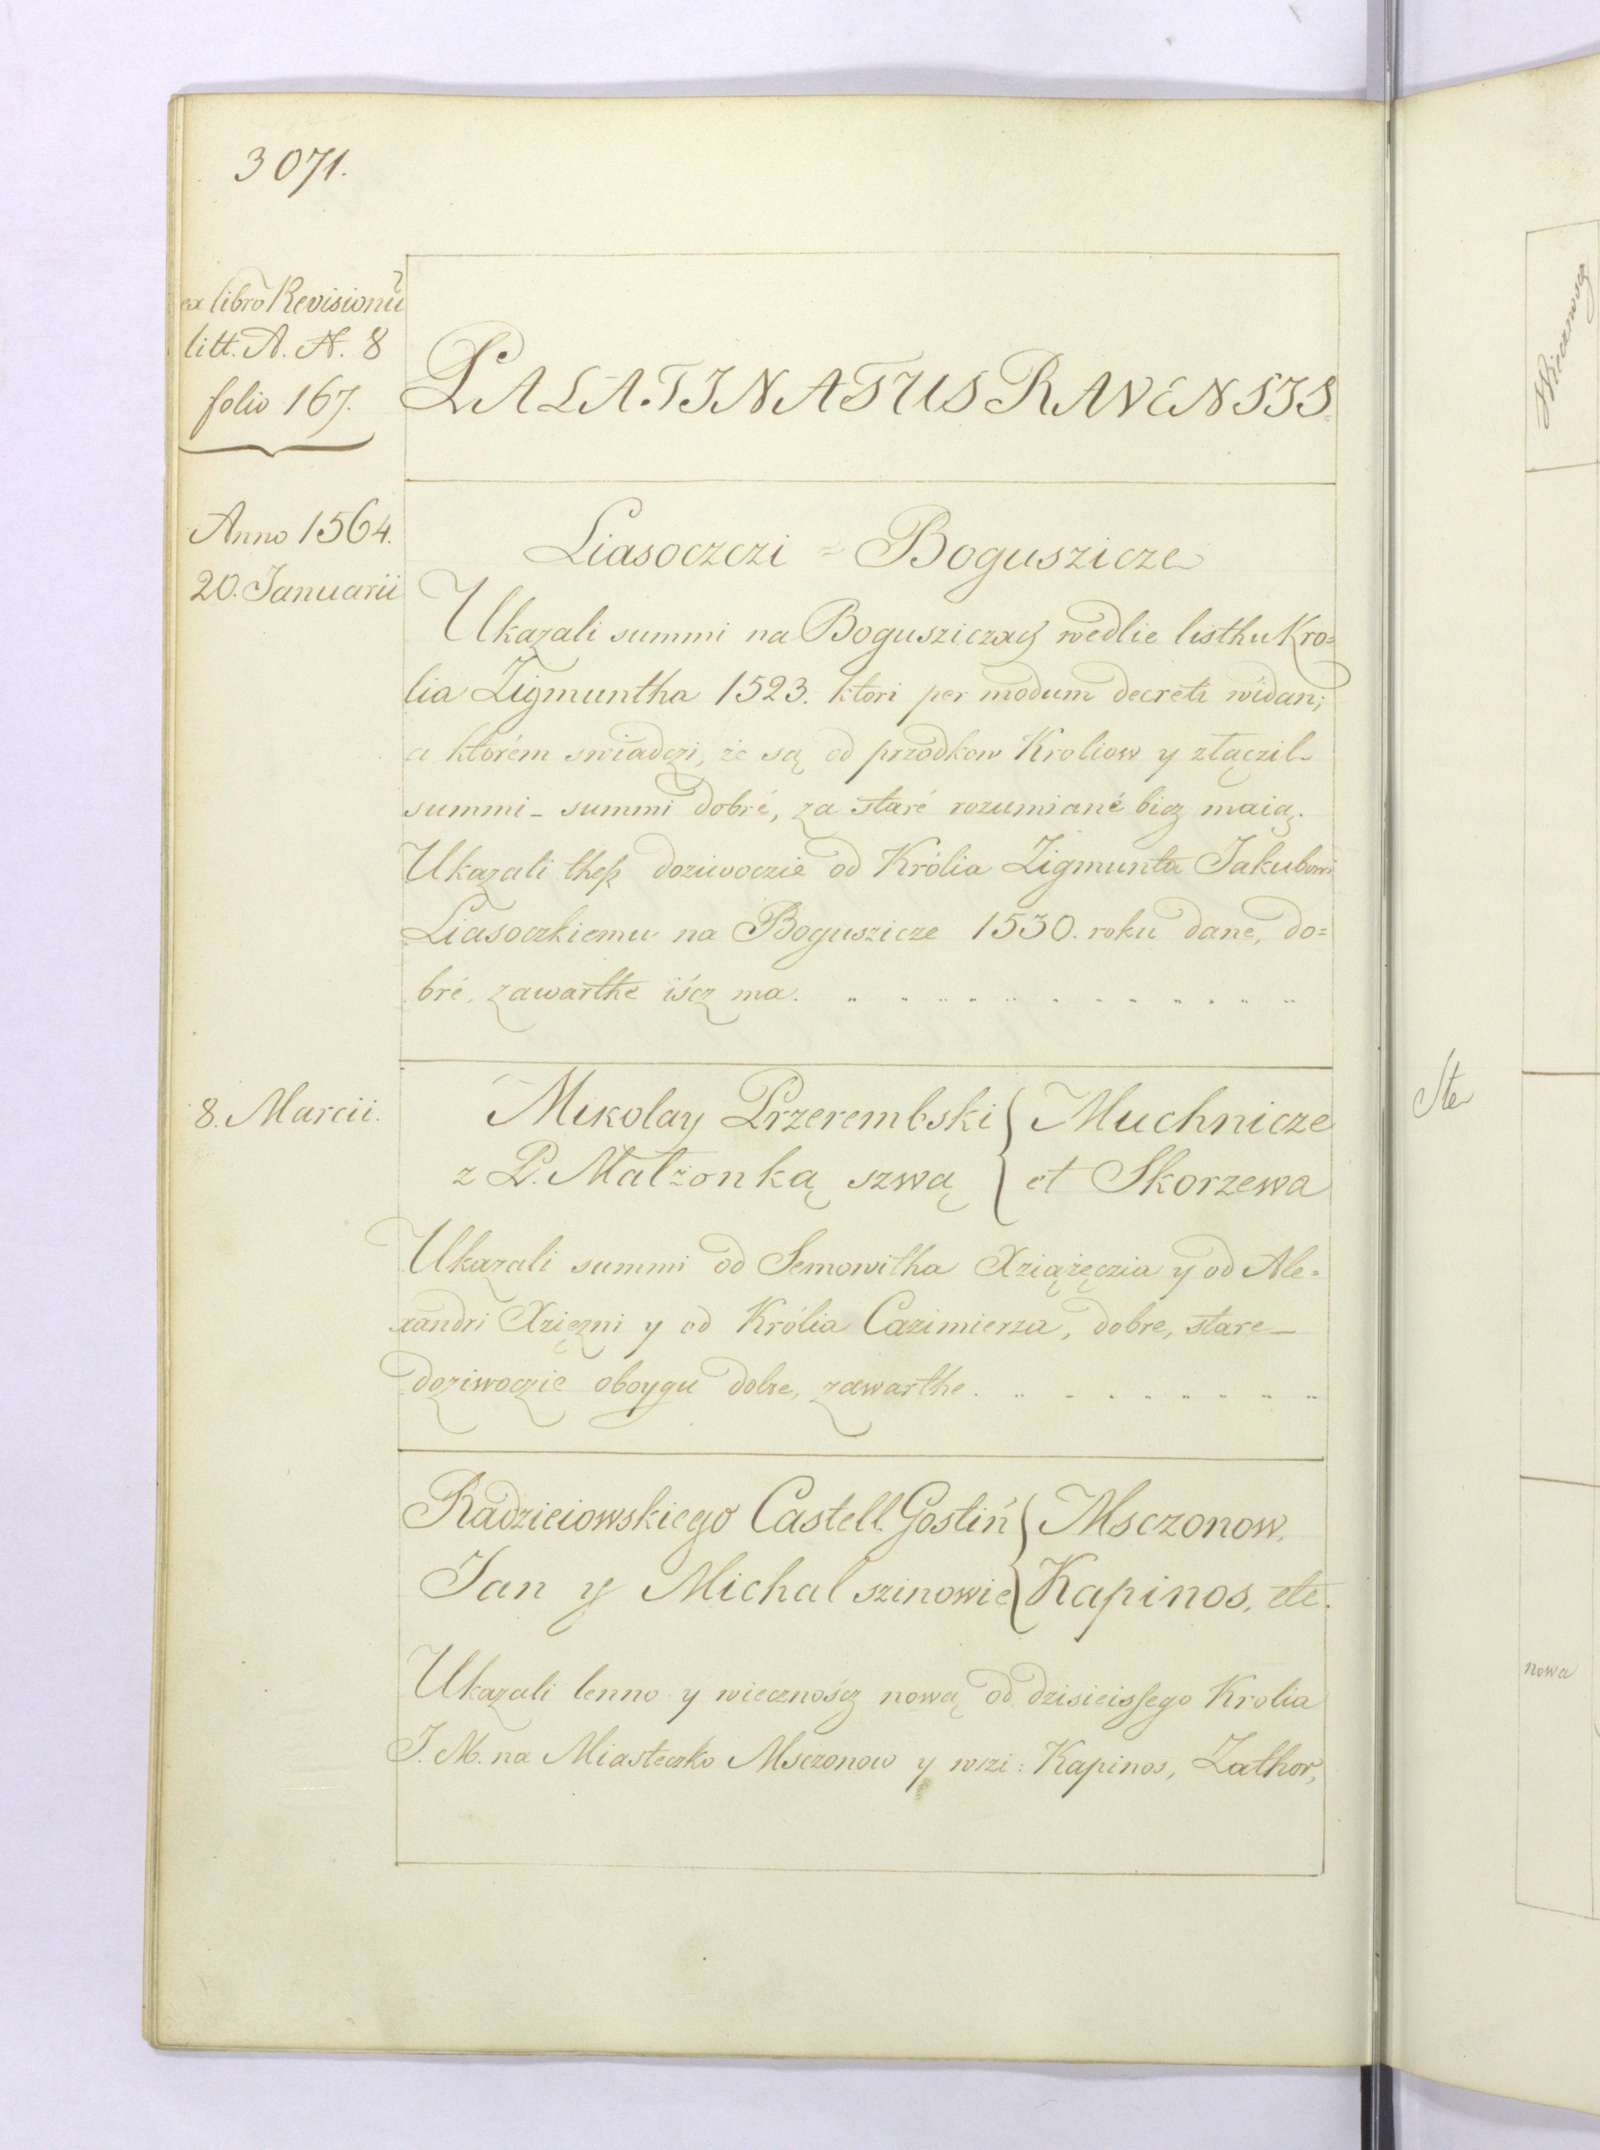 3071.
ex libro Revisionũ
litt. A. A. 8
folio 167.
PALATINATUS RAVENSIS.
Anno 1564.
20. Januarii
Liasoczczi = Boguszicze
Ukazali summi na Bogusziczach wedlie listhu Kro=
lia Zigmuntha 1523. ktori per modum decreti widan;
a ktorém swiadczi, że są od przodkow Kroliow y złączil
summi - summi dobré, za staré rozumiané bicz maią.
Ukazali thesz doziwoczie od Królia Zigmunta Jakubowi
Liasoczkiemu na Boguszicze 1530. roku dane, do=
bré, zawarthe iścz ma.
8. Marcii.
Mikolay Przerembski
z P. Malżonką szwą
Muchnicze
et Skorzewa
Ukazali summi od Semowitha Xziążęczia y od Ale=
xandri Xzięzni y od Królia Cazimierza, dobre, stare—
doziwoczie oboygu dobre, zawarthe.
Radzieiowskiego Castell. Gostiń
Jan y Michal szinowie
Msczonow,
Kapinos, etc.
Ukazali lenno y wiecznoścz nową od dzisieissego Krolia
J. M. na Miasteczko Msczonow y wszi: Kapinos, Zathor,
Wiecznoscz
Ste
nowa